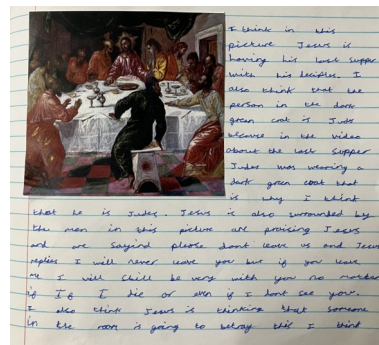 I think in this
picture Jesus is
having his last supper
with his deciples. I
also think that the
person in the dark
green coat is Juds
because in the video
about the last supper
Judas was wearing a
dark green coat that
is why I think
that he is Judes. Jesus is also surrounded by
the men in this picture are praising Jesus
and are sayind please dont leave us and Jesus
replies I will never leave you but if you leave
me I will still be very with you no matter
if If I die or even if I dont see you.
I also think Jesus is thinking that someone
in the room is going to betray this I think